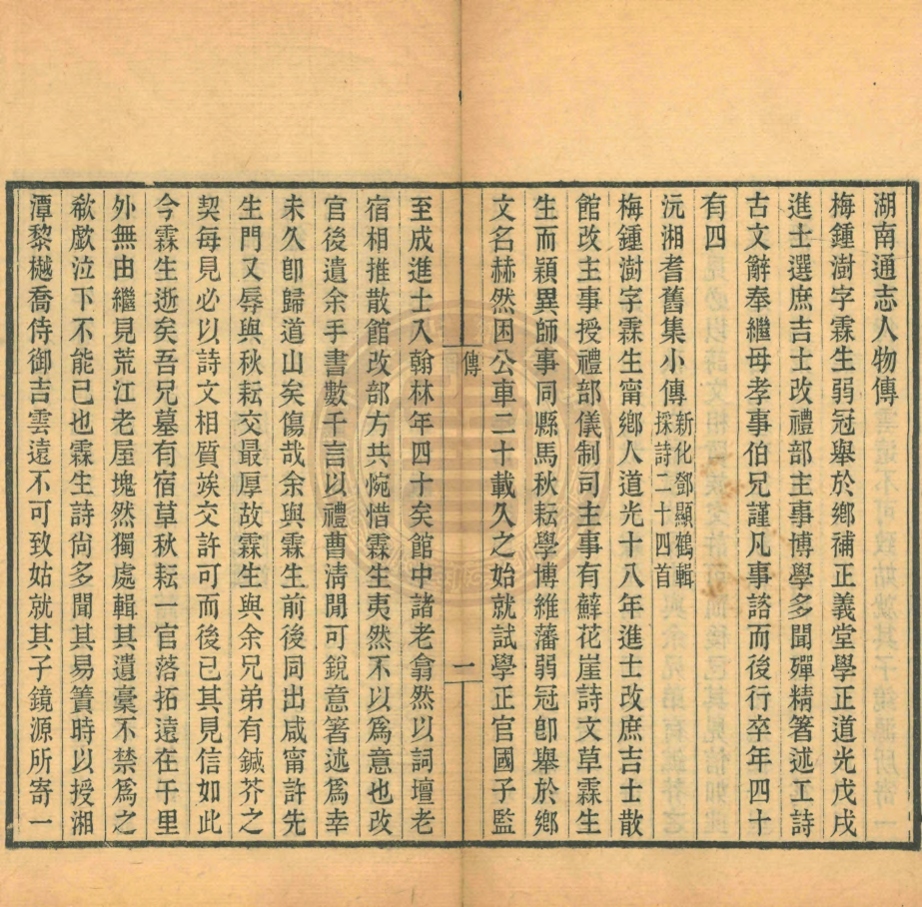 湖南通志人物傳
梅鍾澍字霖生弱冠舉於鄉補正義堂學正道光戊戌
進士選庶吉士改禮部主事博學多聞殫精箸述工詩
古文辭奉繼母孝事伯兄謹凡事諮而後行卒年四十
有四
沅湘耆舊集小傳新化鄧顯鶴輯
採詩二十四首
梅鍾澍字霖生甯鄉人道光十八年進士改庶吉士散
館改主事授禮部儀制司主事有薜花崖詩文草霖生
生而穎異師事同縣馬秋耘學博維藩弱冠卽舉於鄉
文名赫然困公車二十載久之始就試學正官國子監
傳
一
至成進士入翰林年四十矣館中諸老翕然以詞壇老
宿相推散館改部方共惋惜霖生夷然不以爲意也改
官後遺余手書數千言以禮曹淸閒可銳意箸述爲幸
未久卽歸道山矣傷哉余與霖生前後同出咸甯許先
生門又辱與秋耘交最厚故霖生與余兄弟有鍼芥之
契每見必以詩文相質竢交許可而後已其見信如此
今霖生逝矣吾兄墓有宿草秋耘一官落拓遠在千里
外無由繼見荒江老屋塊然獨處輯其遺稾不禁爲之
欷歔泣下不能已也霖生詩尙多聞其易簀時以授湘
潭黎樾喬侍御吉雲遠不可致姑就其子鏡源所寄一